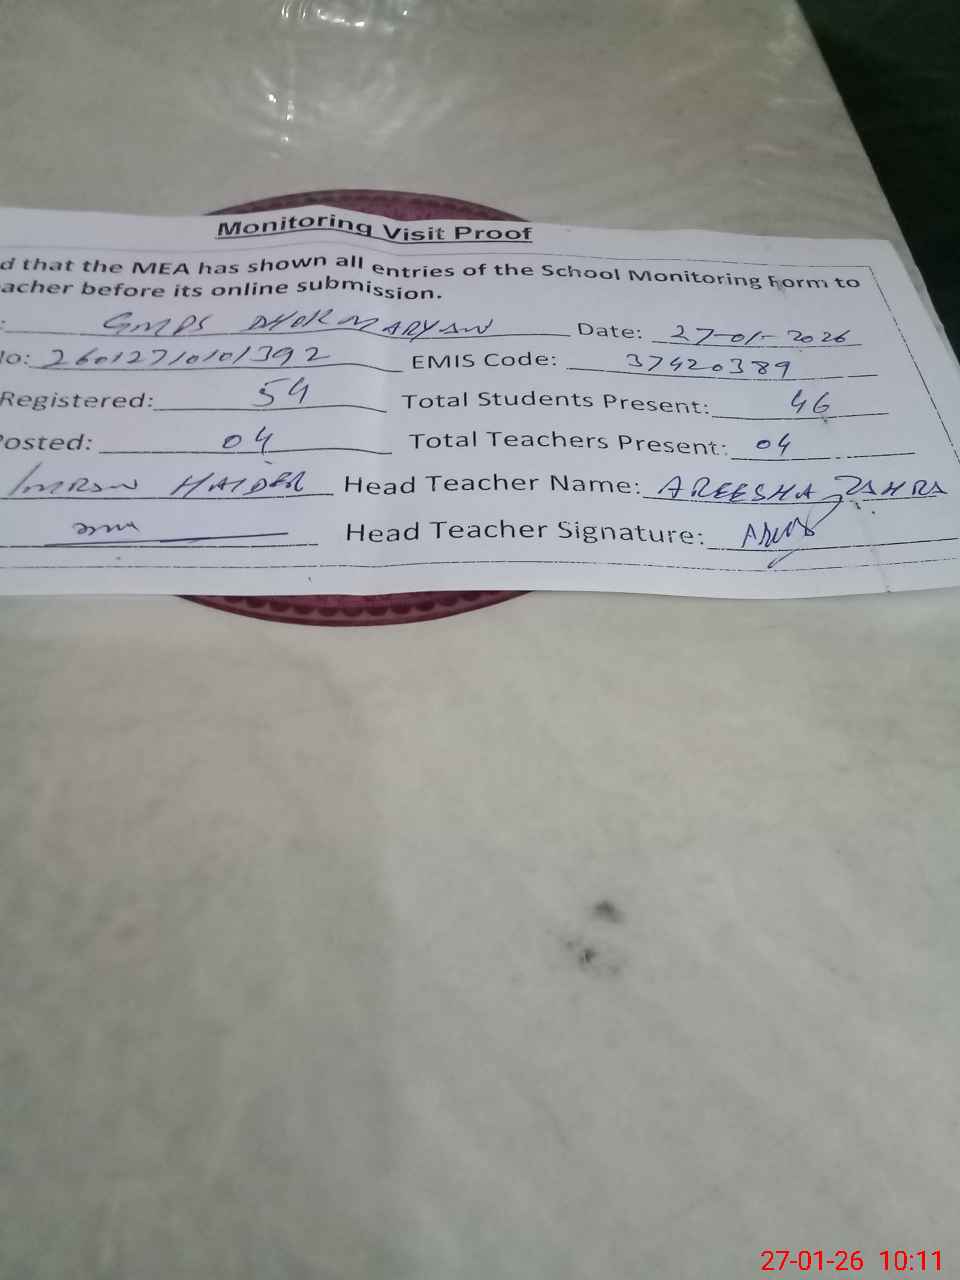 Monitoring Visit Proof
d that the MEA has shown all entries of the School Monitoring Form to
acher before its online submission.
: GMPS DHOK MARYAN Date: 27-01-2026
No: 26012710101392 EMIS Code: 37420389
Registered: 54 Total Students Present: 46
Posted: 04 Total Teachers Present: 04
IMRAN HAIDER Head Teacher Name: AREESHA ZAHRA
Head Teacher Signature:
27-01-26 10:11